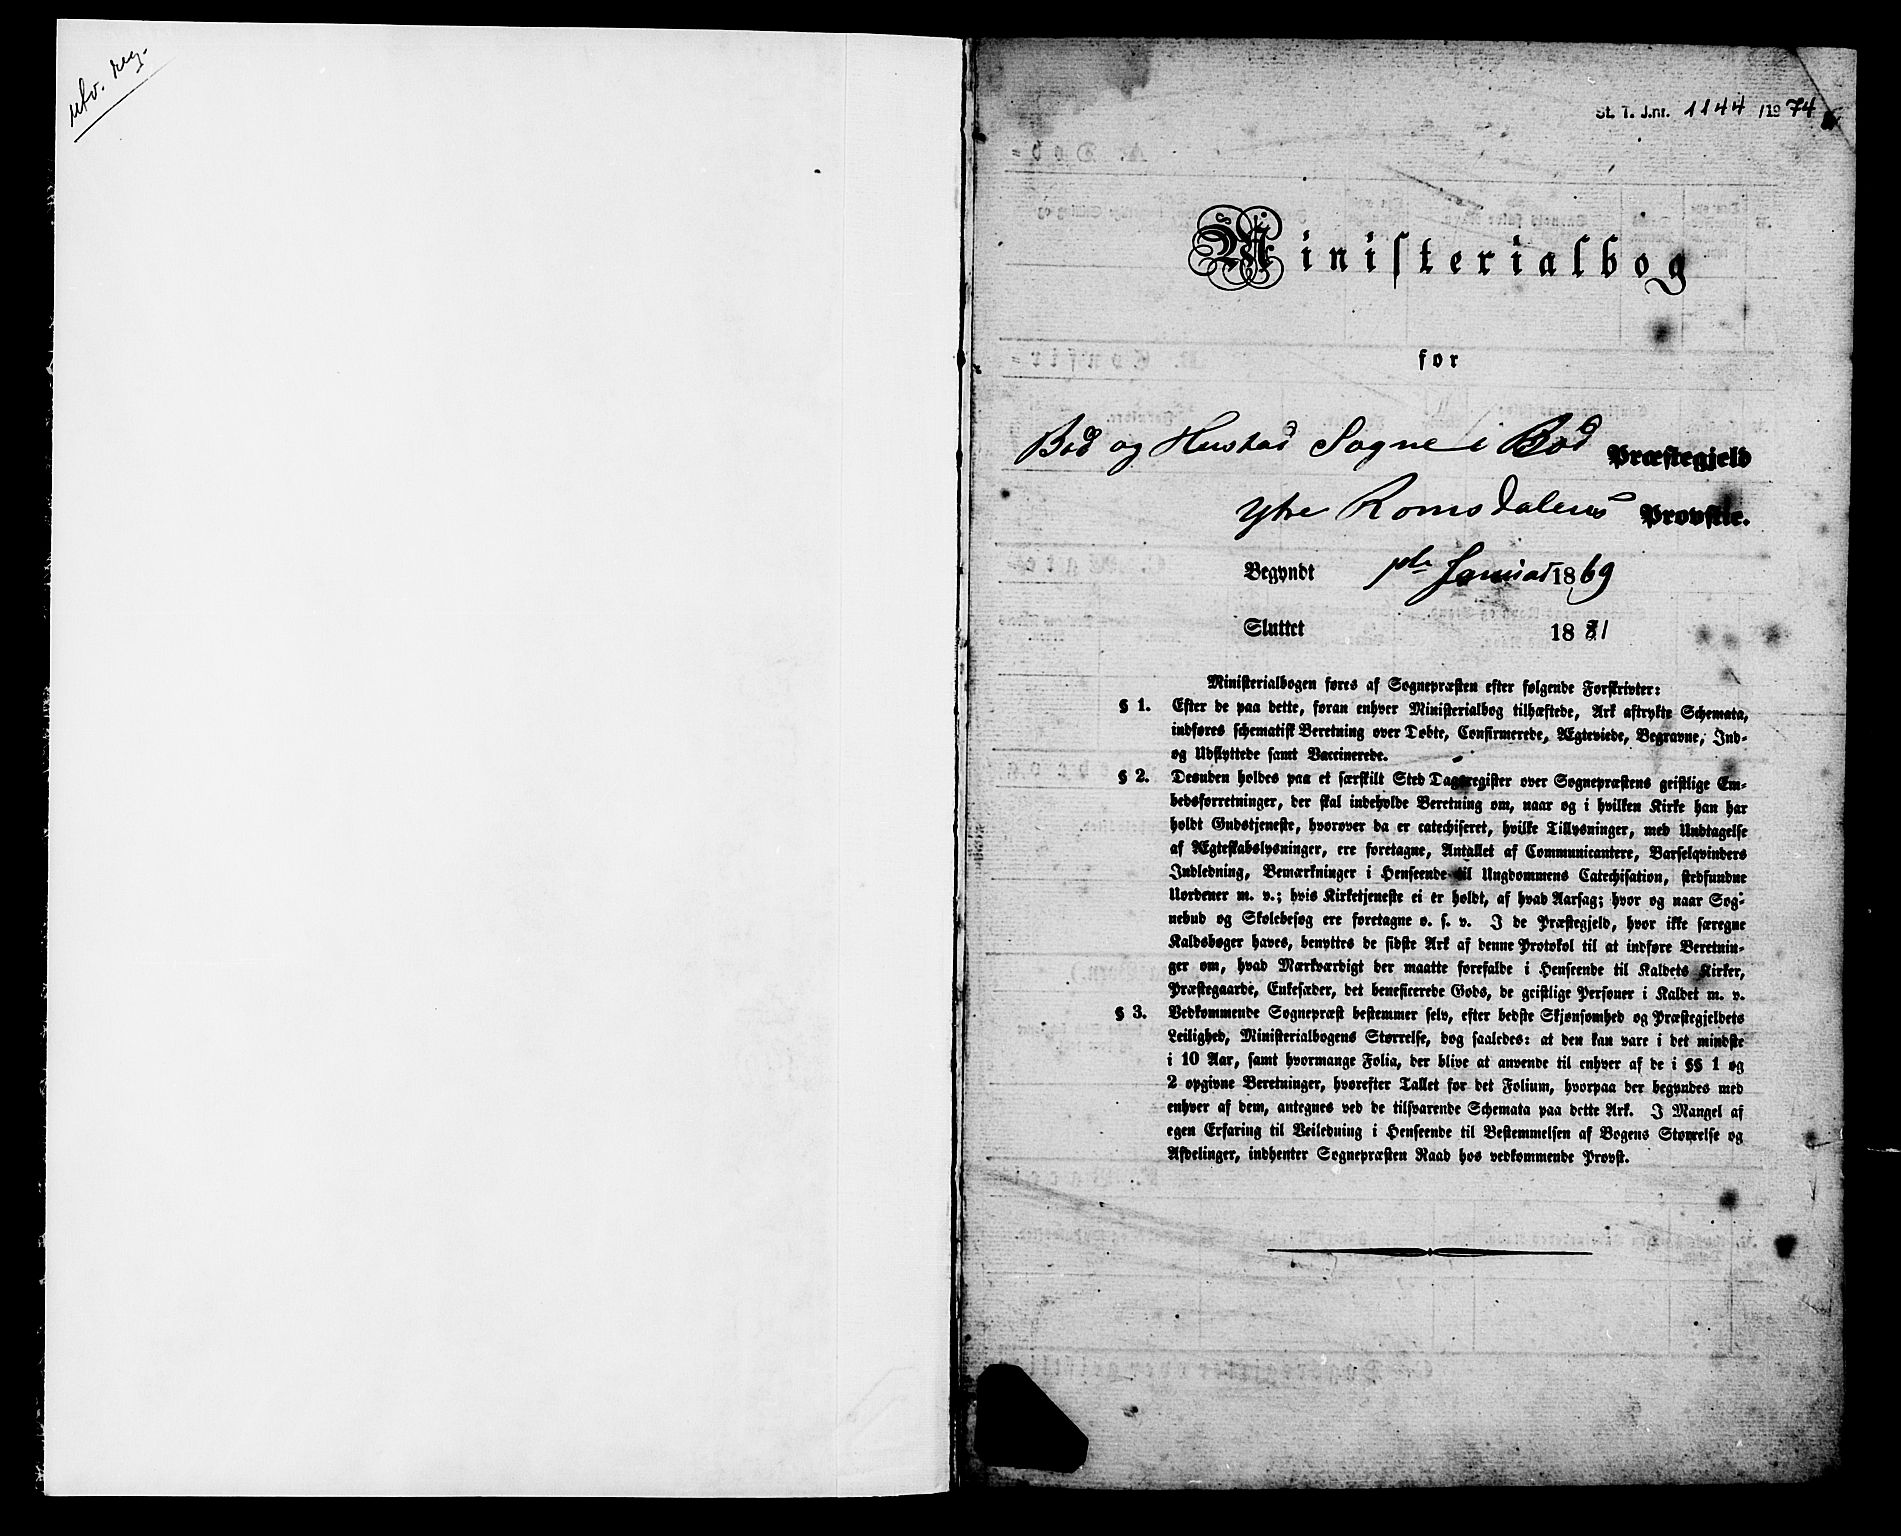 utv. reg.
St. T. J.nr. 1144 /1974
Ministerialbog
for
Bod og Hustad Sogne i Bod Præstegjeld
Ytre Romsdalens Provstie.
Begyndt 1ste Januar 1869
Sluttet 18
Ministerialbogen føres af Sognepræsten efter følgende Forskrivter:
§ 1. Efter de paa dette, foran enhver Ministerialbog tilhæftede, Ark aftrykte Schemata,
indføres schematisk Beretning over Døbte, Confirmerede, Ægteviede, Begravne, Ind-
og Udflyttede samt Vaccinerede.
§ 2. Desuden holdes paa et særskilt Sted Dagsregister over Sognepræstens geistlige Em-
bedsforretninger, der skal indeholde Beretning om, naar og i hvilken Kirke han har
holdt Gudstjeneste, hvorover da er catechiseret, hvilke Tillysninger, med Undtagelse
af Ægteskabslysninger, ere foretagne, Antallet af Communicantere, Barselqvinders
Indledning, Bemærkninger i Henseende til Ungdommens Catechisation, stedfundne
Uordener m. v.; hvis Kirketjeneste ei er holdt, af hvad Aarsag; hvor og naar Sog-
nebud og Skolebesøg ere foretagne o. s. v. I de Præstegjeld, hvor ikke særegne
Kaldsbøger haves, benyttes de sidste Ark af denne Protokol til at indføre Beretnin-
ger om, hvad Mærkværdigt der maatte forefalde i Henseende til Kaldets Kirker,
Præstegaarde, Enkesæder, det beneficerede Gods, de geistlige Personer i Kaldet m. v.
§ 3. Vedkommende Sognepræst bestemmer selv, efter bedste Skjønsomhed og Præstegjeldets
Leilighed, Ministerialbogens Størrelse, dog saaledes: at den kan vare i det mindste
i 10 Aar, samt hvormange Folia, der blive at anvende til enhver af de i §§ 1 og
2 opgivne Beretninger, hvorefter Tallet for det Folium, hvorpaa der begyndes med
enhver af dem, antegnes ved de tilsvarende Schemata paa dette Ark. I Mangel af
egen Erfaring til Veiledning i Henseende til Bestemmelsen af Bogens Størrelse og
Afdelinger, indhenter Sognepræsten Raad hos vedkommende Provst.